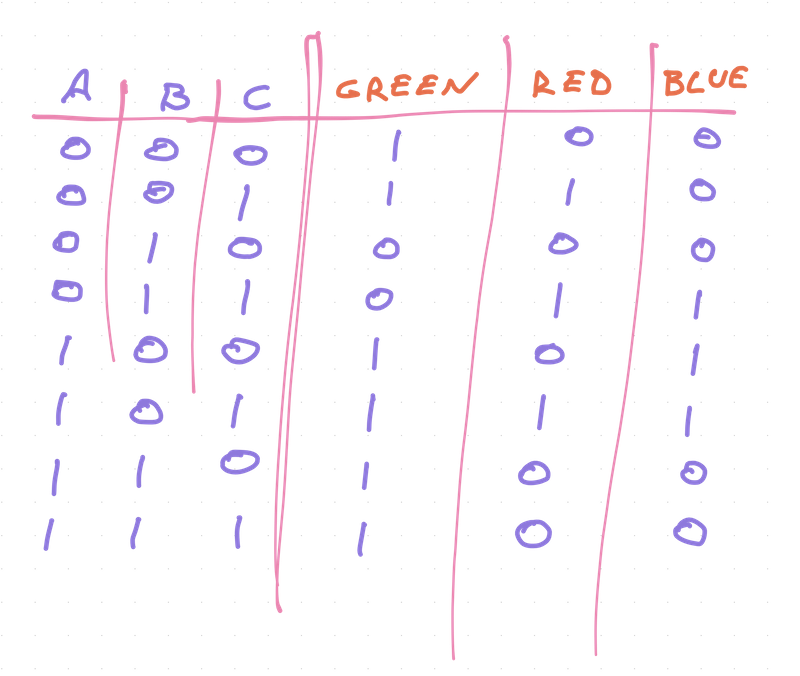 A B C GREEN RED BLUE
0 0 0 1 0 0
0 0 1 1 1 0
0 1 0 0 0 0
0 1 1 0 1 1
1 0 0 1 0 1
1 0 1 1 1 1
1 1 0 1 0 0
1 1 1 1 0 0